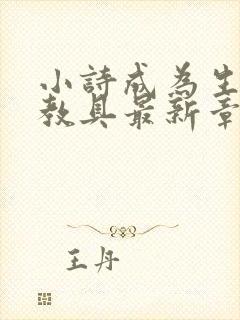 小詩成為生
教具最新章
王丹